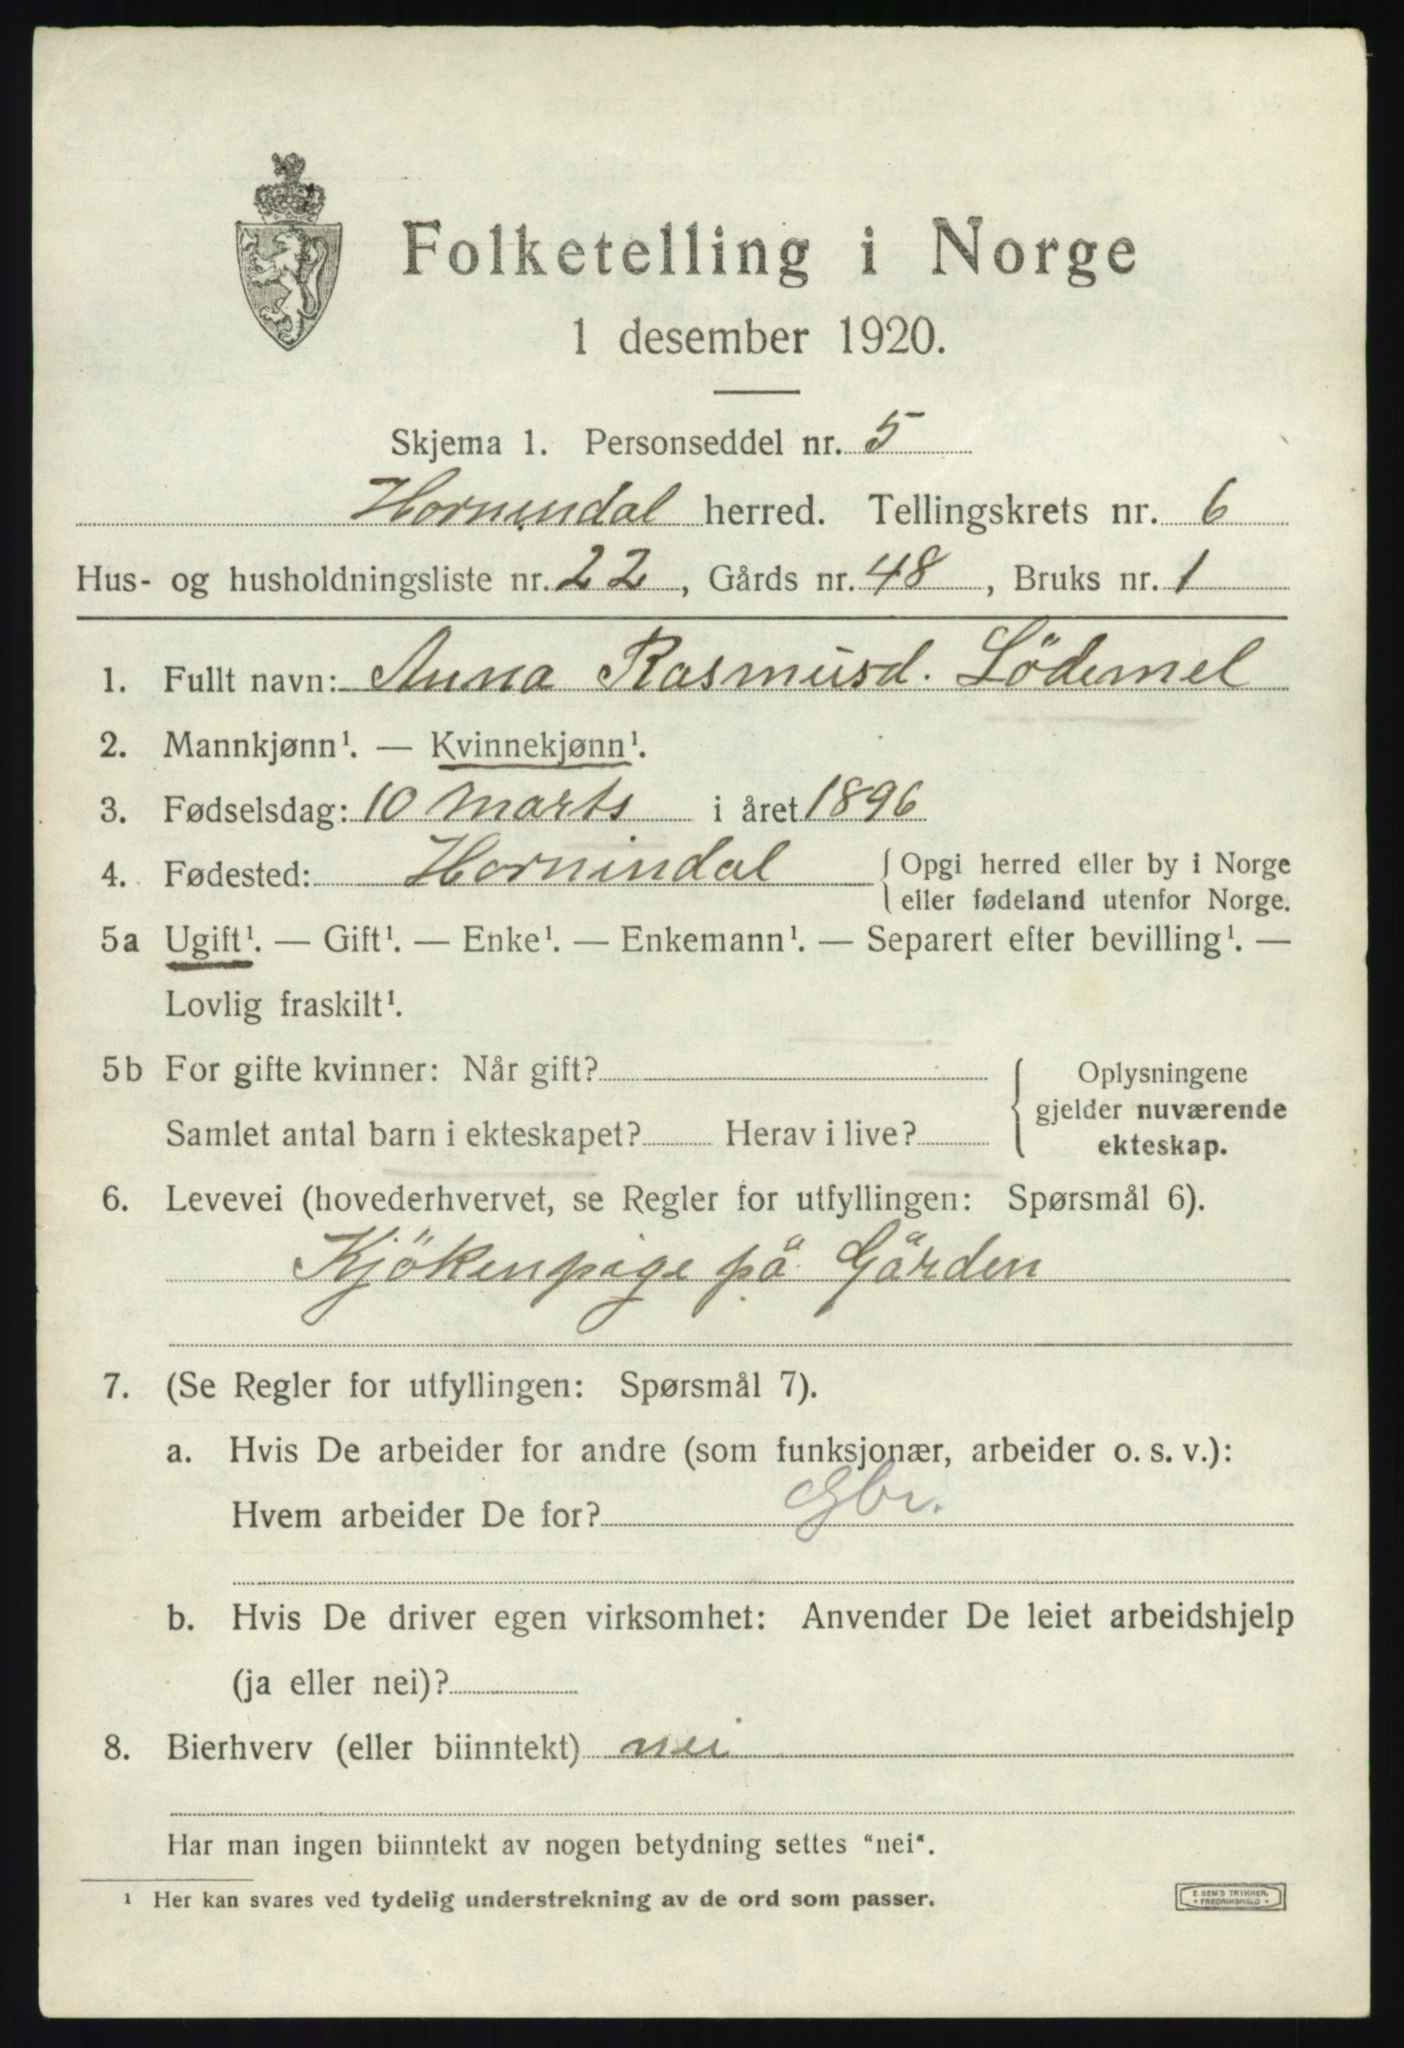 Folketelling i Norge
1 desember 1920.
Skjema 1. Personseddel nr. 5
Hornindal herred. Tellingskrets nr. 6
Hus- og husholdningsliste nr. 22, Gårds nr. 48, Bruks nr. 1
1. Fullt navn: Anna Rasmusd. Lödemel
2. Mannkjønn¹. — Kvinnekjønn¹.
3. Fødselsdag: 10 marts i året 1896
4. Fødested: Hornindal {Opgi herred eller by i Norge
eller fødeland utenfor Norge.
5a Ugift¹. — Gift¹. — Enke¹. — Enkemann¹. — Separert efter bevilling¹. —
Lovlig fraskilt¹.
5b For gifte kvinner: Når gift? {Oplysningene
gjelder nuværende
Samlet antal barn i ekteskapet? Herav i live? ekteskap.
6. Levevei (hovederhvervet, se Regler for utfyllingen: Spørsmål 6).
Kjökenpige på Gården
7. (Se Regler for utfyllingen: Spørsmål 7).
a. Hvis De arbeider for andre (som funksjonær, arbeider o. s. v.):
Hvem arbeider De for? Gbr.
b. Hvis De driver egen virksomhet: Anvender De leiet arbeidshjelp
(ja eller nei)?
8. Bierhverv (eller biinntekt) nei
Har man ingen biinntekt av nogen betydning settes "nei".
¹ Her kan svares ved tydelig understrekning av de ord som passer.
E. SEM'S TRYKKERI,
FREDRIKSHALD